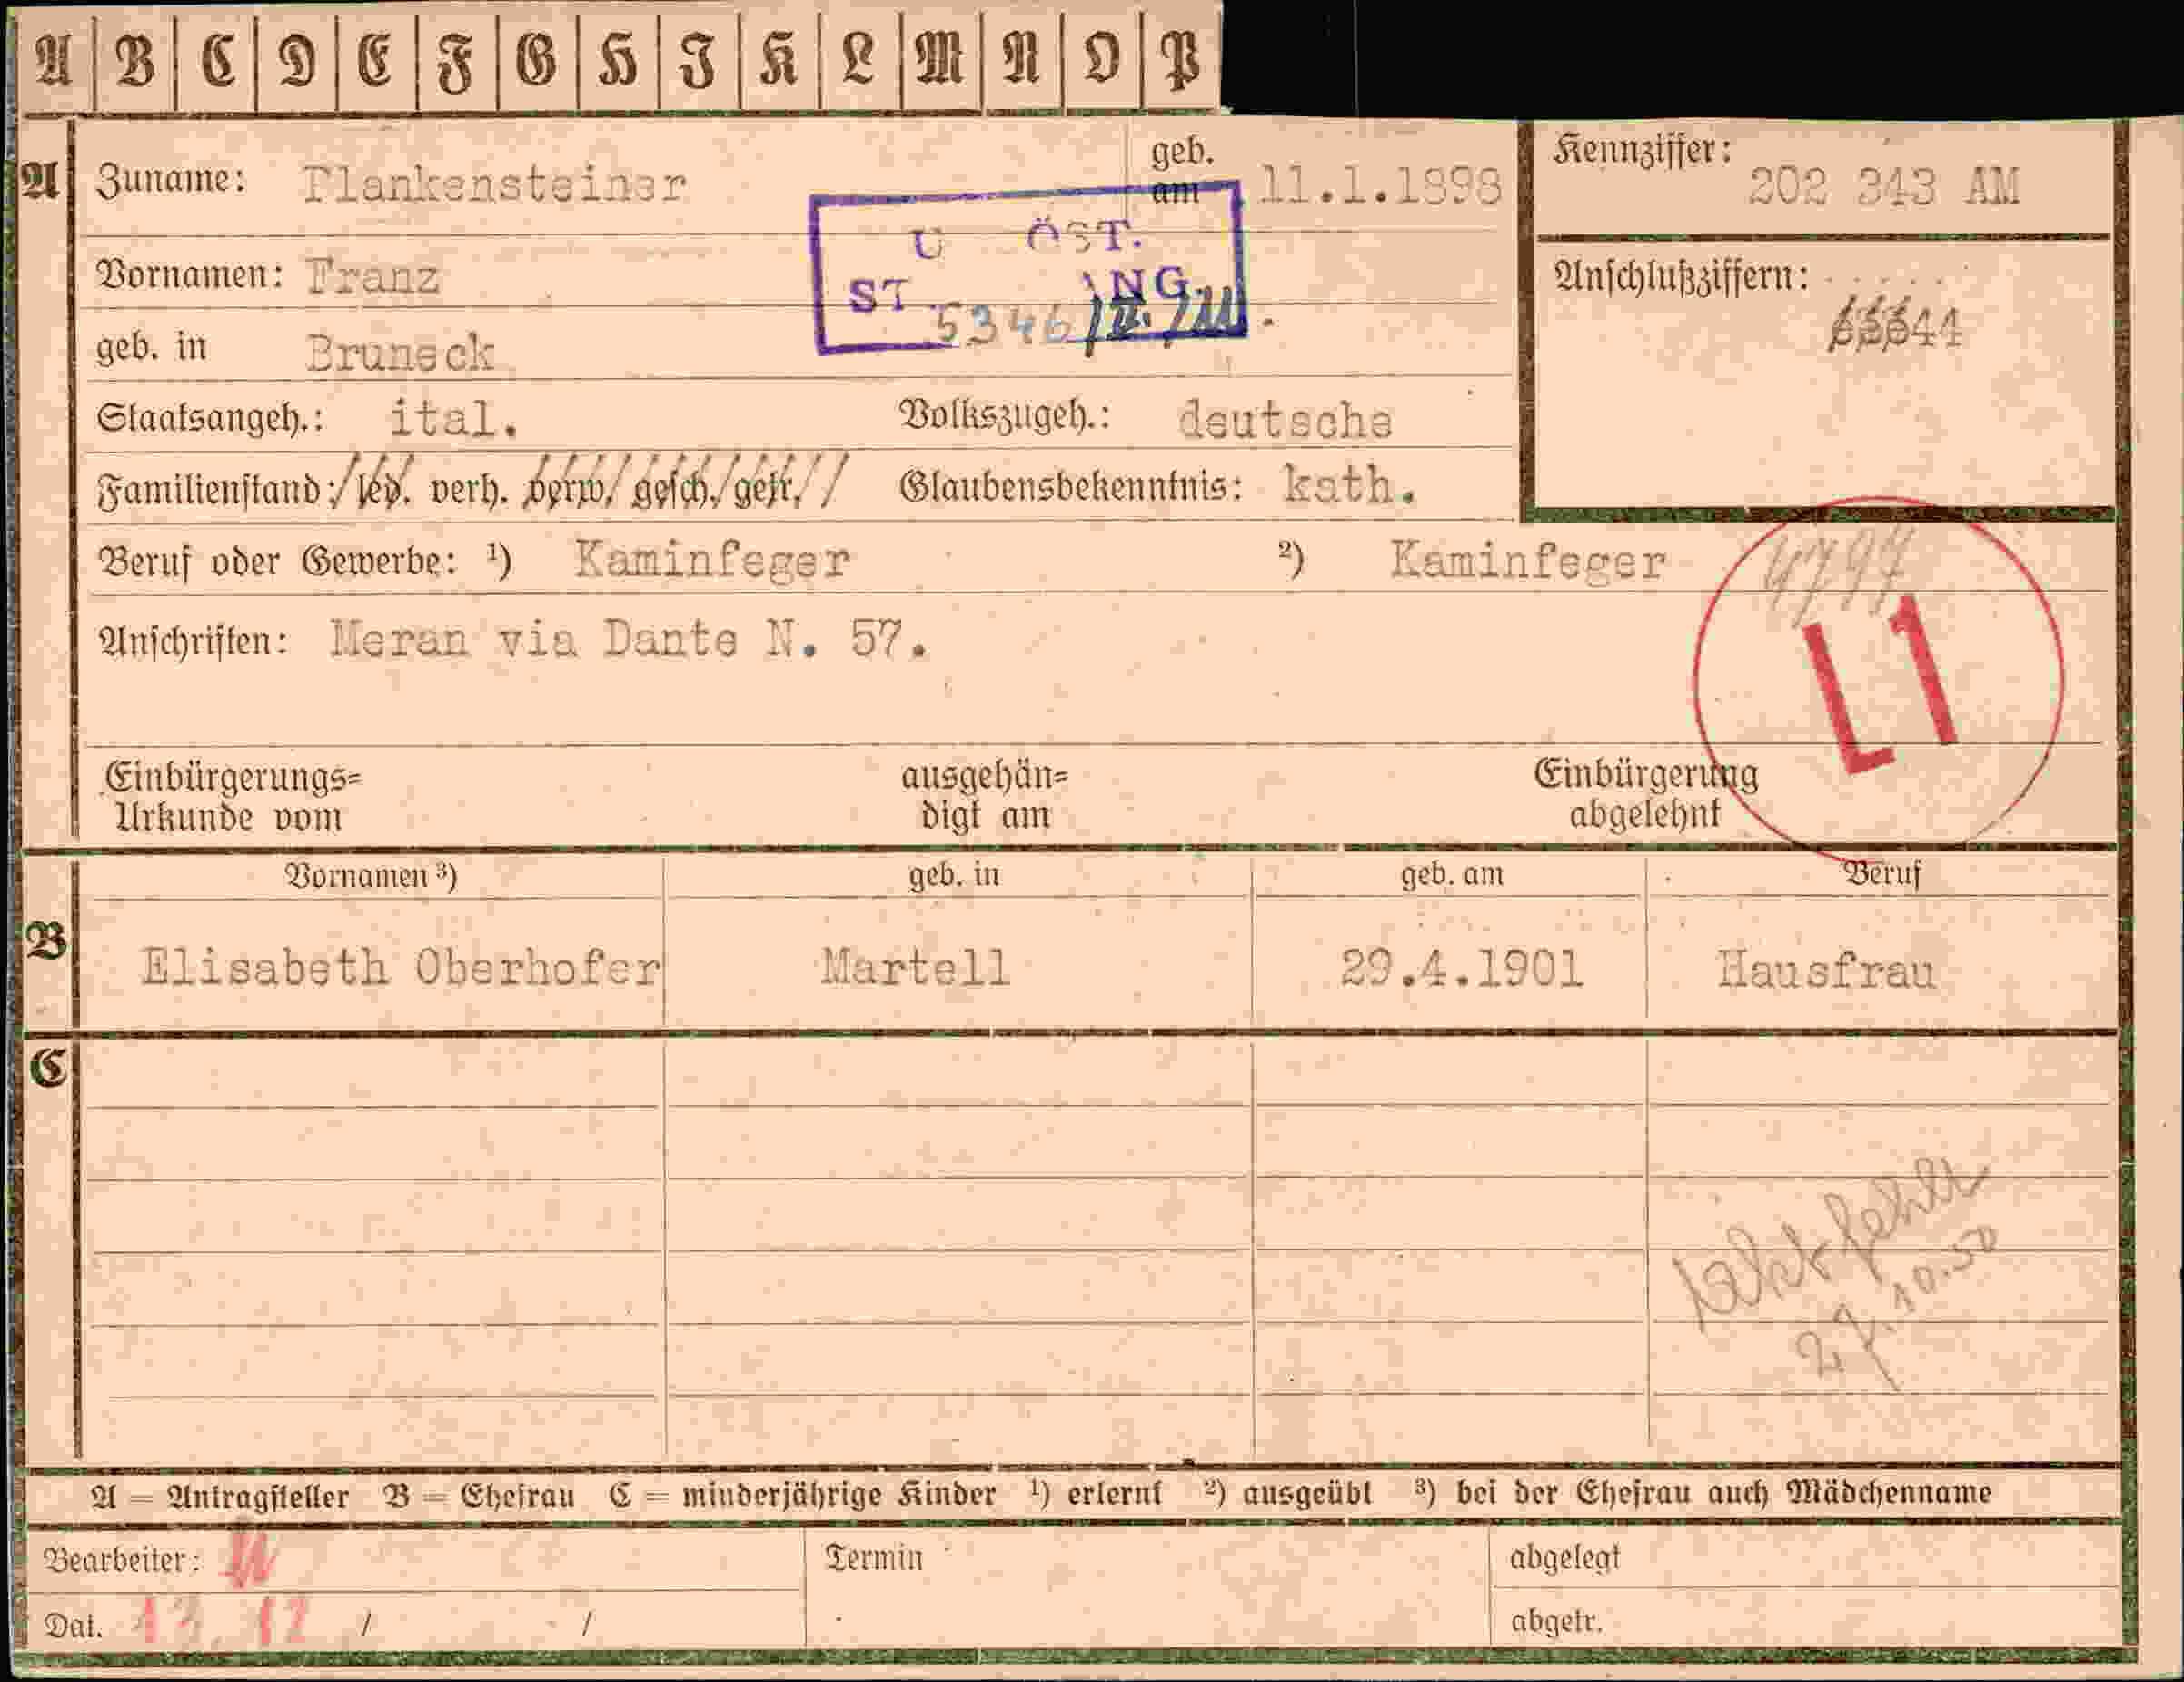 A B C D E F G H I K L M N O P
A Zuname: Plankensteiner geb. am 11.1.1898
Kennziffer: 202 343 AM
U ÖST.
Vornamen: Franz
ST NG
5346
Anschlußziffern:
44
geb. in Bruneck
Staatsangeh.: ital. Volkszugeh.: deutsche
Familienstand: led. verh. verw. gesch. getr. Glaubensbekenntnis: kath.
Beruf oder Gewerbe: ¹) Kaminfeger ²) Kaminfeger
4797
L1
Anschriften: Meran via Dante N. 57.
Einbürgerungs=
Urkunde vom
ausgehän=
digt am
Einbürgerung
abgelehnt
Vornamen ³) geb. in geb. am Beruf
B Elisabeth Oberhofer Martell 29.4.1901 Hausfrau
C
Akt fehlt
27.10.50
A = Antragsteller B = Ehefrau C = minderjährige Kinder ¹) erlernt ²) ausgeübt ³) bei der Ehefrau auch Mädchenname
Bearbeiter: Termin abgelegt
Dat. 12 / / abgetr.